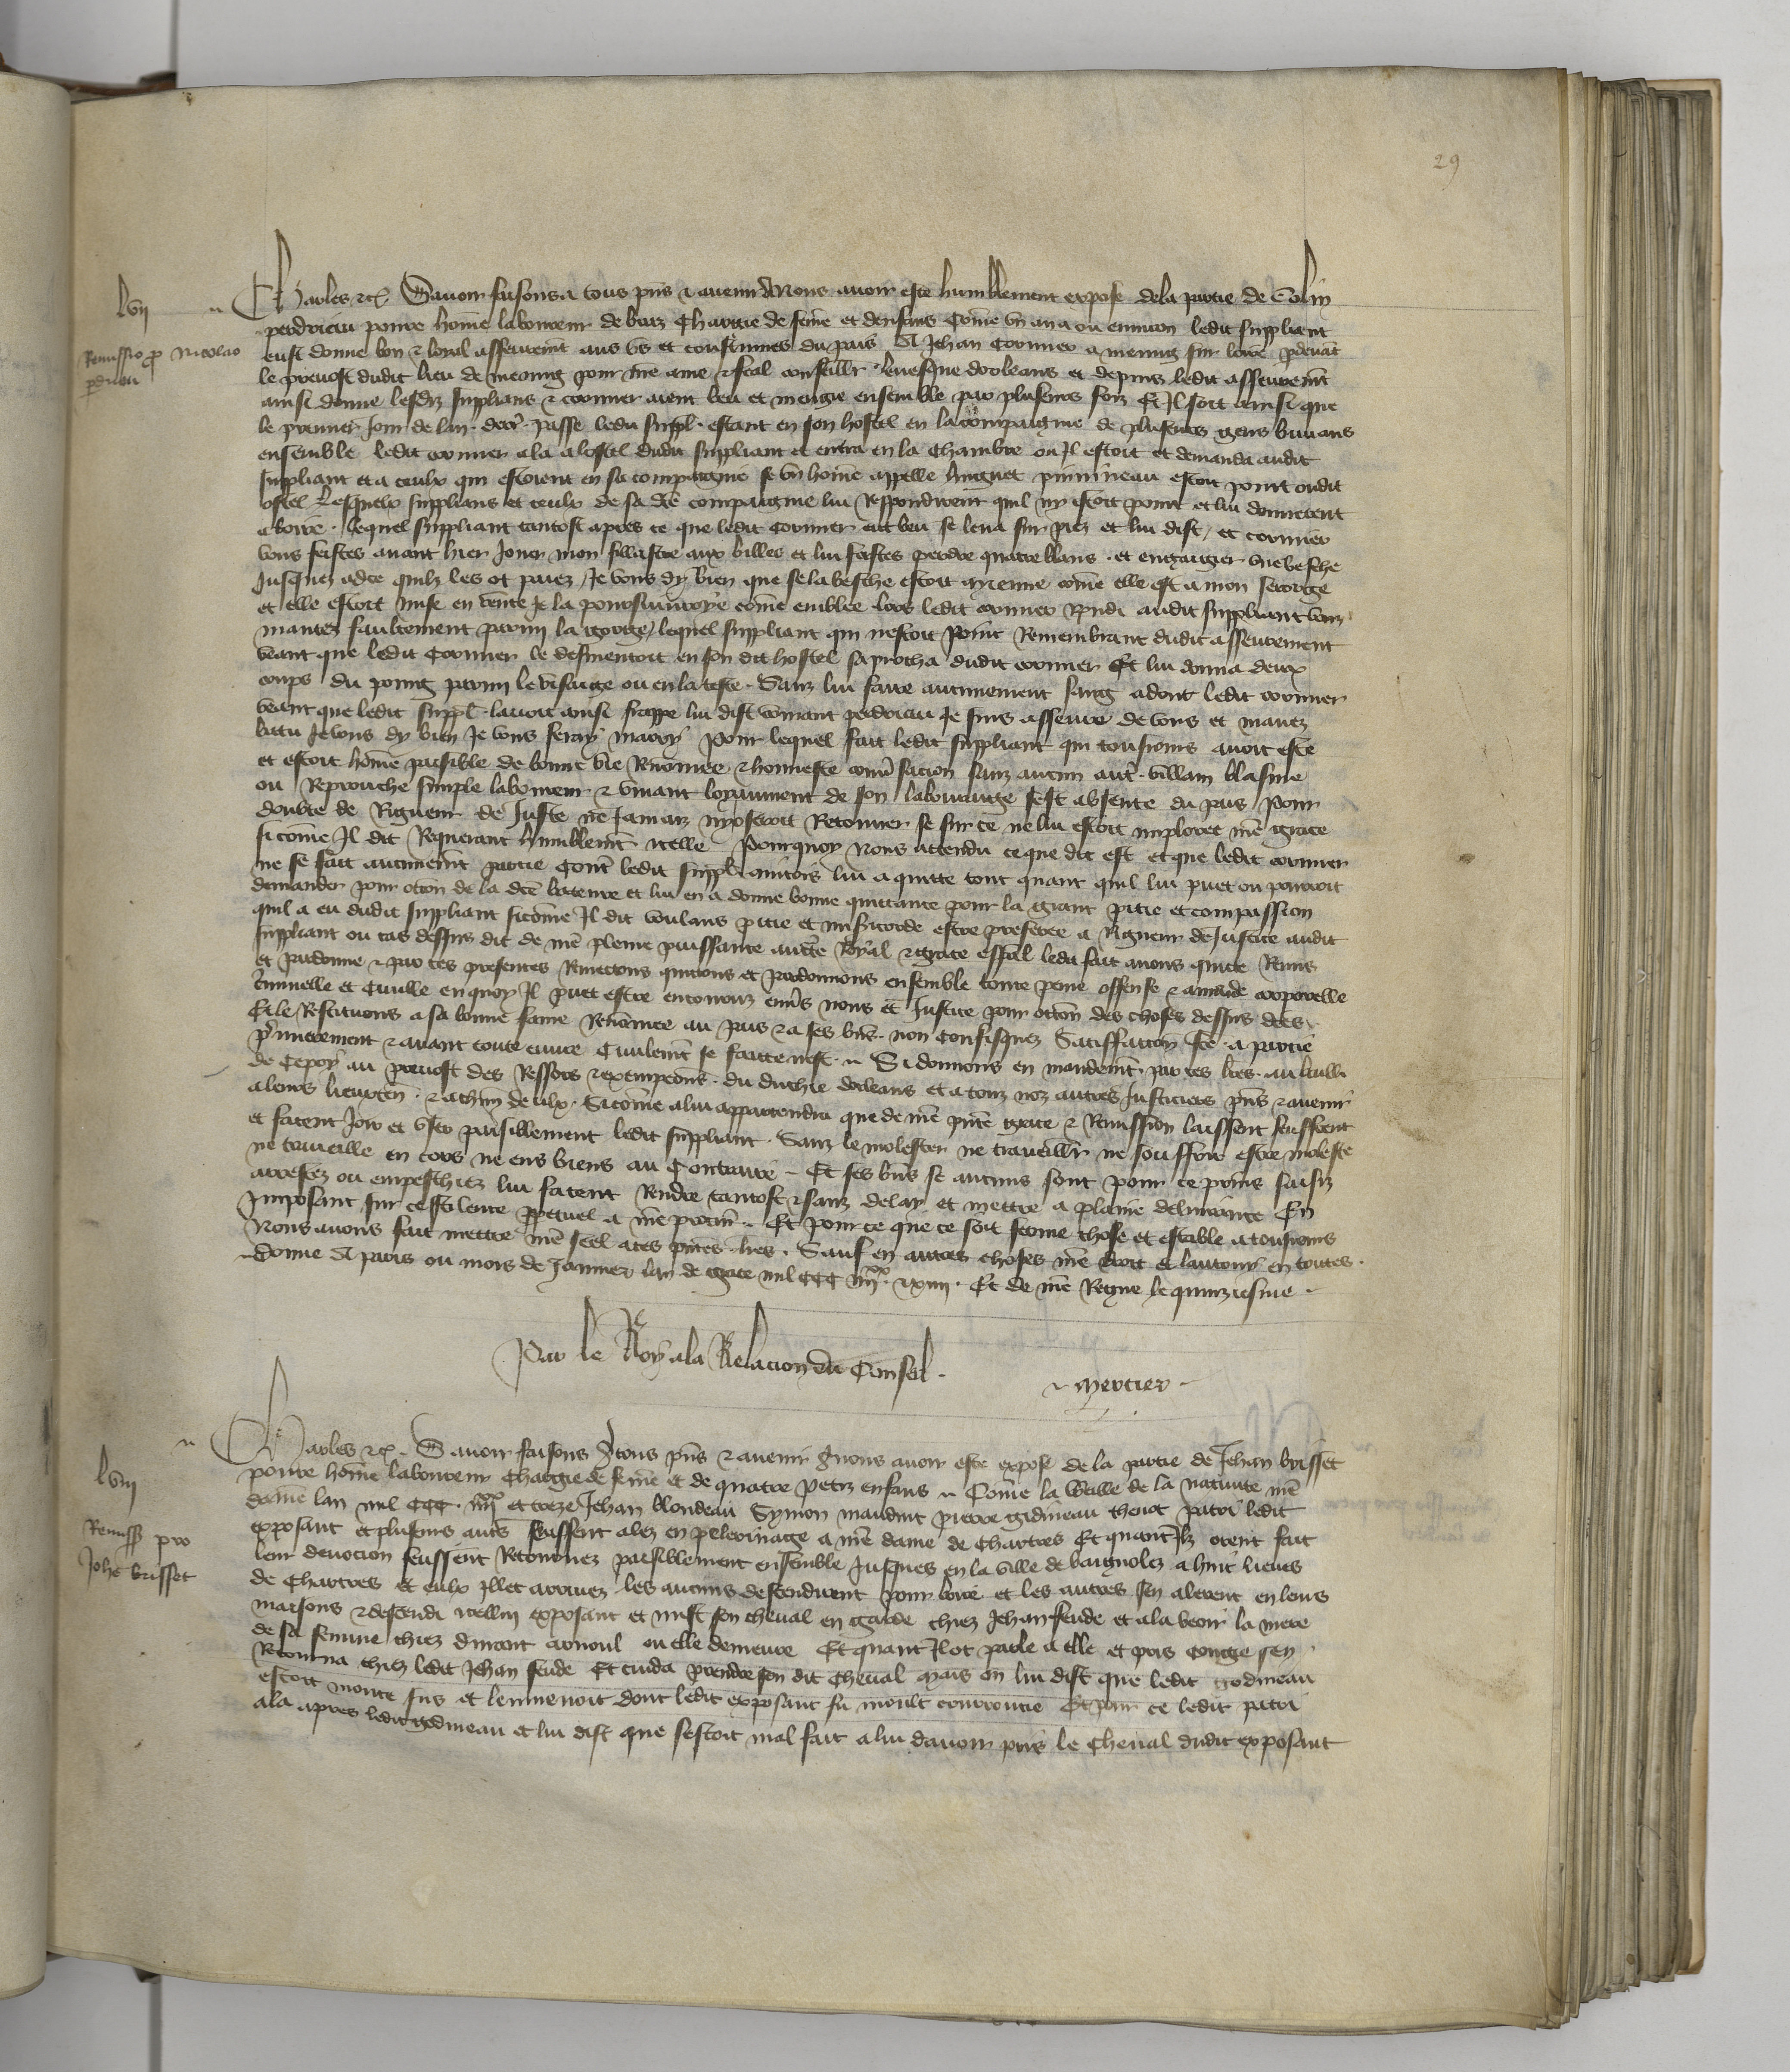 29
lvii
Remissio pro Nicolao
perdriau
Charles etc. Savoir faisons a tous pns et avenir Nous avoir este humblement expose de la partie de Colin
perdriau povre home laboureur de braz Chargie de feme et denfans Come un an a ou environ ledit suppliant
eust donne bon et loyal asseuremt aus us et coustumes du pais A Jehan Cormier a meung sur loire pdevant
le prevost dudit lieu de meung pour nre ame et feal conseillr levesque dorleans et depuis ledit asseuremt
ainsi donne lesdiz supplians et cormier aient beu et mengie ensemble par plusieurs foiz Et Il soit ainsi que
le premier Jour de lan derr passe ledit suppl estant en son hostel en la compaignie de plusieurs gens buvans
ensemble ledit cormier ala a lostel dudit suppliant et entra en la Chambre ou Il estoit et demanda audit
suppliant et a ceulx qui estoient en sa compaignie se un home appelle huguet pinineau estoit point oudit
ostel Lesquelx supplians et ceulx de sa dce compaignie lui Respondirent quil ny estoit point et lui donnerent
a boire lequel suppliant tantost apres ce que ledit Cormier eut beu se leva sur piez et lui dist et cormier
vous feistes avant hier Jouer mon fillastre aux billes et lui feistes perdre quatre blans et engaiger une besche
Jusques adce quilz les ot paiez Je vous dy bien que se la besche estoit myenne come elle est a mon serorge
et elle estoit mise en vente Je la poursuivroye come emblee lors ledit cormier Rpndi audit suppliant vous
mantez faulcement parmi la gorge lequel suppliant qui nestoit Point Remembrant dudit asseurement
veant que ledit Cormier le desmentoit en son dit hostel saprocha dudit cormier Et lui donna deux
coups du poing parmi le visaige ou en la teste Sanz lui faire aucunement sang adont ledit cormier
veant que ledit suppl lavoit ainsi frappe lui dist comant perdriau Je suis asseure de vous et mavez
batu Je vous dy bien Je vous feray marry Pour lequel fait ledit suppliant qui tousjours avoit este
et estoit home paisible de bonne vie Rnomee et honneste convsacion sanz aucun autr villain blasme
ou Reprouche simple laboureur et vivant loyaument de son labouraige sest absente du pais Pour
doubte de Rigueur de Justice ne Jamaiz ny oseroit Retourner se sur ce ne lui estoit imploree nre grace
si come Il dit Requerant humblemt icelle Pourquoy Nous attendu ce que dit est et que ledit cormier
ne se fait aucunemt partie Contr ledit suppl aincois lui a quitte tout quant quil lui puet ou pourroit
demander pour occon de la dce bateure et lui en a donne bonne quittance pour la grant pitie et compassion
quil a eu dudit suppliant sicome Il dit voulans pitie et misericorde estre preferee a Rigueur de Justice audit
suppliant ou cas dessus dit de nre pleine puissance aucte Royal et grace espal ledit fait avons quitte Remis
et pardonne et par ces presentes Remettons quittons et pardonnons ensemble toute peine offense et amende corporelle
criminelle et Civille en quoy Il puet estre encouruz envs nous et Justice pour occon des choses dessus dces
Et le Restituons a sa bonne fame Renomee au pais et a ses bns non confisquez Satisfaccon fce a partie
premierement et avant toute euvre Civilemt se faicte nest Si donnons en mandemt par ces lres au bailli
de Cepoy au prevost des Ressors et exempcons du duchie dorleans et a touz noz autres Justiciers pns et avenir
a leurs lieuxten et achun deulx Sicome a lui appartendra que de nre pnte grace et Remission laissent seuffrent
et facent Joir et user paisiblement ledit suppliant Sanz le molester ne travaillr ne souffrir estre moleste
ne travaille en corps ne ens biens au Contraire Et ses bns se aucuns sont pour ce prins saisiz
arrestez ou empeschiez lui facent Rendre tantost et sanz delay et mettre a plaine delivrance En
Imposant sur ce silence ppetuel a nre procur Et pour ce que ce soit ferme chose et estable a tousjours
Nous avons fait mettre nre seel a ces pntes lres Sauf en autres choses nre droit et lautruy en toutes
donne A paris ou mois de Janvier lan de grace mil CCC iiiixx et xiiii Et de nre Regne le quinziesme
Par le Roy a la Relacion du Conseil
mercier
lviii
Remiss pro
Johe brisset
Charles etc. Savoir faisons A tous pns et avenir Nous avoir este expose de la partie de Jehan brisset
povre home laboureur Chargie de feme et de quatre Petiz enfans Come la veille de la nativite nre
dame lan mil CCC iiiixx et treze Jehan blondeau Symon mauduit pierre godineau thenot patri ledit
exposant et plusieurs autrs feussent alez en pelerinage a nre dame de Chartres Et quant Ilz orent fait
leur devocion feussent Retournez paisiblement ensemble Jusques en la ville de baignolez a huit lieues
de Chartres et eulx Illec arrivez les aucuns descendirent pour boire et les autres sen alerent en leurs
maisons et descendi icellui exposant et mist son cheval en garde chiez Jehan feude et ala veoir la mere
de sa femme chiez dmant arnoul ou elle demeure Et quant Il ot parle a elle et pris congie sen
Retourna chiez ledit Jehan feude Et cuida prendre son dit Cheval mais on lui dist que ledit godineau
estoit monte sus et lenmenoit dont ledit exposant fu moult courroucie Et pour ce ledit patri
ala apres ledit godineau et lui dist que sestoit mal fait a lui davoir pris le Cheval dudit exposant